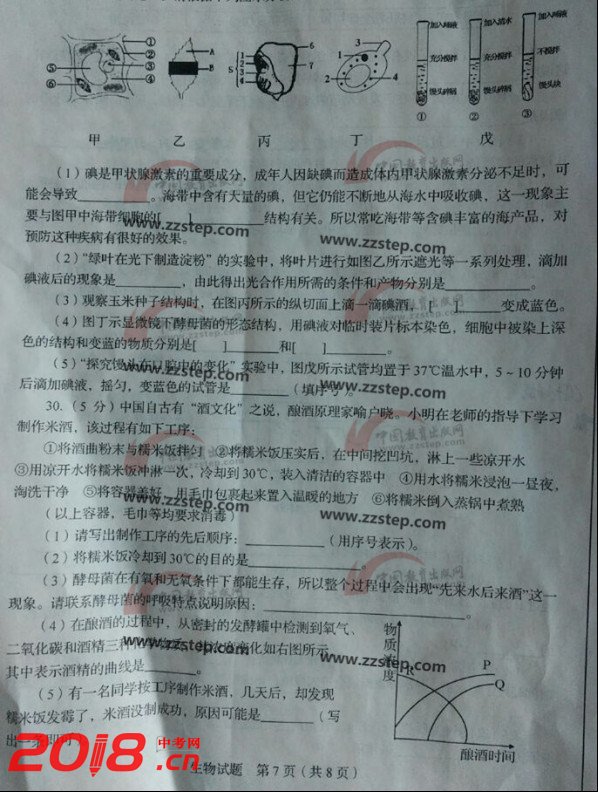 加入唾液 加入清水 加入唾液
① A 1 6 3 1 充分搅拌 充分搅拌 不搅拌
⑤ ② B S 2 7 2 4
⑥ ③ 3
④ 4 馒头碎屑 馒头碎屑 馒头块
① ② ③
甲 乙 丙 丁 戊
(1)碘是甲状腺激素的重要成分,成年人因缺碘而造成体内甲状腺激素分泌不足时,可
能会导致________。海带中含有大量的碘,但它仍能不断地从海水中吸收碘,这一现象主
要与图甲中海带细胞的[ ]________结构有关。所以常吃海带等含碘丰富的海产品,对
预防这种疾病有很好的效果。
www.zzstep.com
(2)“绿叶在光下制造淀粉”的实验中,将叶片进行如图乙所示遮光等一系列处理,滴加
碘液后的现象是________,由此得出光合作用所需的条件和产物分别是________。
(3)观察玉米种子结构时,在图丙所示的纵切面上滴一滴碘酒,[ ]________变成蓝色。
(4)图丁示显微镜下酵母菌的形态结构,用碘液对临时装片标本染色,细胞中被染上深
色的结构和变蓝的物质分别是[ ]________和[ ]________。
(5)“探究馒头在口腔中的变化”实验中,图戊所示试管均置于37℃温水中,5~10分钟
后滴加碘液,摇匀,变蓝色的试管是________(填序号)。
30.(5分)中国自古有“酒文化”之说,酿酒原理家喻户晓。小明在老师的指导下学习
制作米酒,该过程有如下工序:
①将酒曲粉末与糯米饭拌匀 ②将糯米饭压实后,在中间挖凹坑,淋上一些凉开水
③用凉开水将糯米饭冲淋一次,冷却到30℃,装入清洁的容器中 ④用水将糯米浸泡一昼夜,
淘洗干净 ⑤将容器盖好,用毛巾包裹起来置入温暖的地方 ⑥将糯米倒入蒸锅中煮熟
(以上容器,毛巾等均要求消毒)
(1)请写出制作工序的先后顺序:________(用序号表示)。
(2)将糯米饭冷却到30℃的目的是________。
(3)酵母菌在有氧和无氧条件下都能生存,所以整个过程中会出现“先来水后来酒”这一
现象。请联系酵母菌的呼吸特点说明原因:________。
(4)在酿酒的过程中,从密封的发酵罐中检测到氧气、
二氧化碳和酒精三种 变化如右图所示,
其中表示酒精的曲线是________。
(5)有一名同学按工序制作米酒,几天后,却发现
糯米饭发霉了,米酒没制成功,原因可能是________(写
出一条即可)
物质浓度
R P
Q
酿酒时间
生物试题 第7页(共8页)
中国教育出版网
www.zzstep.com
2018.中考网
.cn